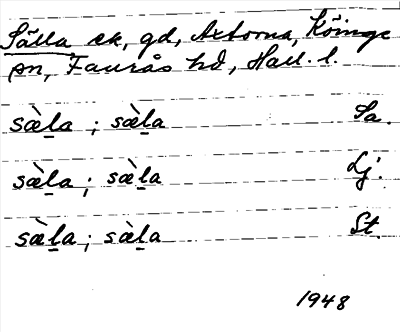 Sälla, ek, gd, Axtorna, Köinge
sn, Faurås hd, Hall. l.
sæ̀l̲a ; sæ̀l̲a Sa.
sæ̀l̲a ; sæ̀l̲a Lj.
sæ̀l̲a ; sæ̀l̲a St.
1948